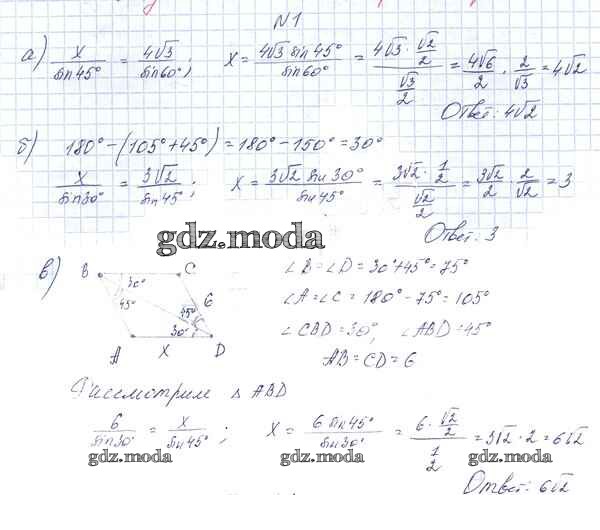 N1
а) x/sin45° = 4√3/sin60°; x = 4√3 sin45°/sin60° = (4√3 · √2/2)/(√3/2) = 4√6/2 · 2/√3 = 4√2
Ответ: 4√2
б) 180° - (105° + 45°) = 180° - 150° = 30°
x/sin30° = 3√2/sin45°; x = 3√2 sin30°/sin45° = (3√2 · 1/2)/(√2/2) = 3√2/2 · 2/√2 = 3
gdz.moda
Ответ: 3
в) B C 30° 45° 6 45° 30° A X D
∠B = ∠D = 30° + 45° = 75°
∠A = ∠C = 180° - 75° = 105°
∠CBD = 30°, ∠ABD = 45°
AB = CD = 6
Рассмотрим Δ ABD
6/sin30° = x/sin45°; x = 6 sin45°/sin30° = (6 · √2/2)/(1/2) = 3√2 · 2 = 6√2
gdz.moda gdz.moda gdz.moda
Ответ: 6√2